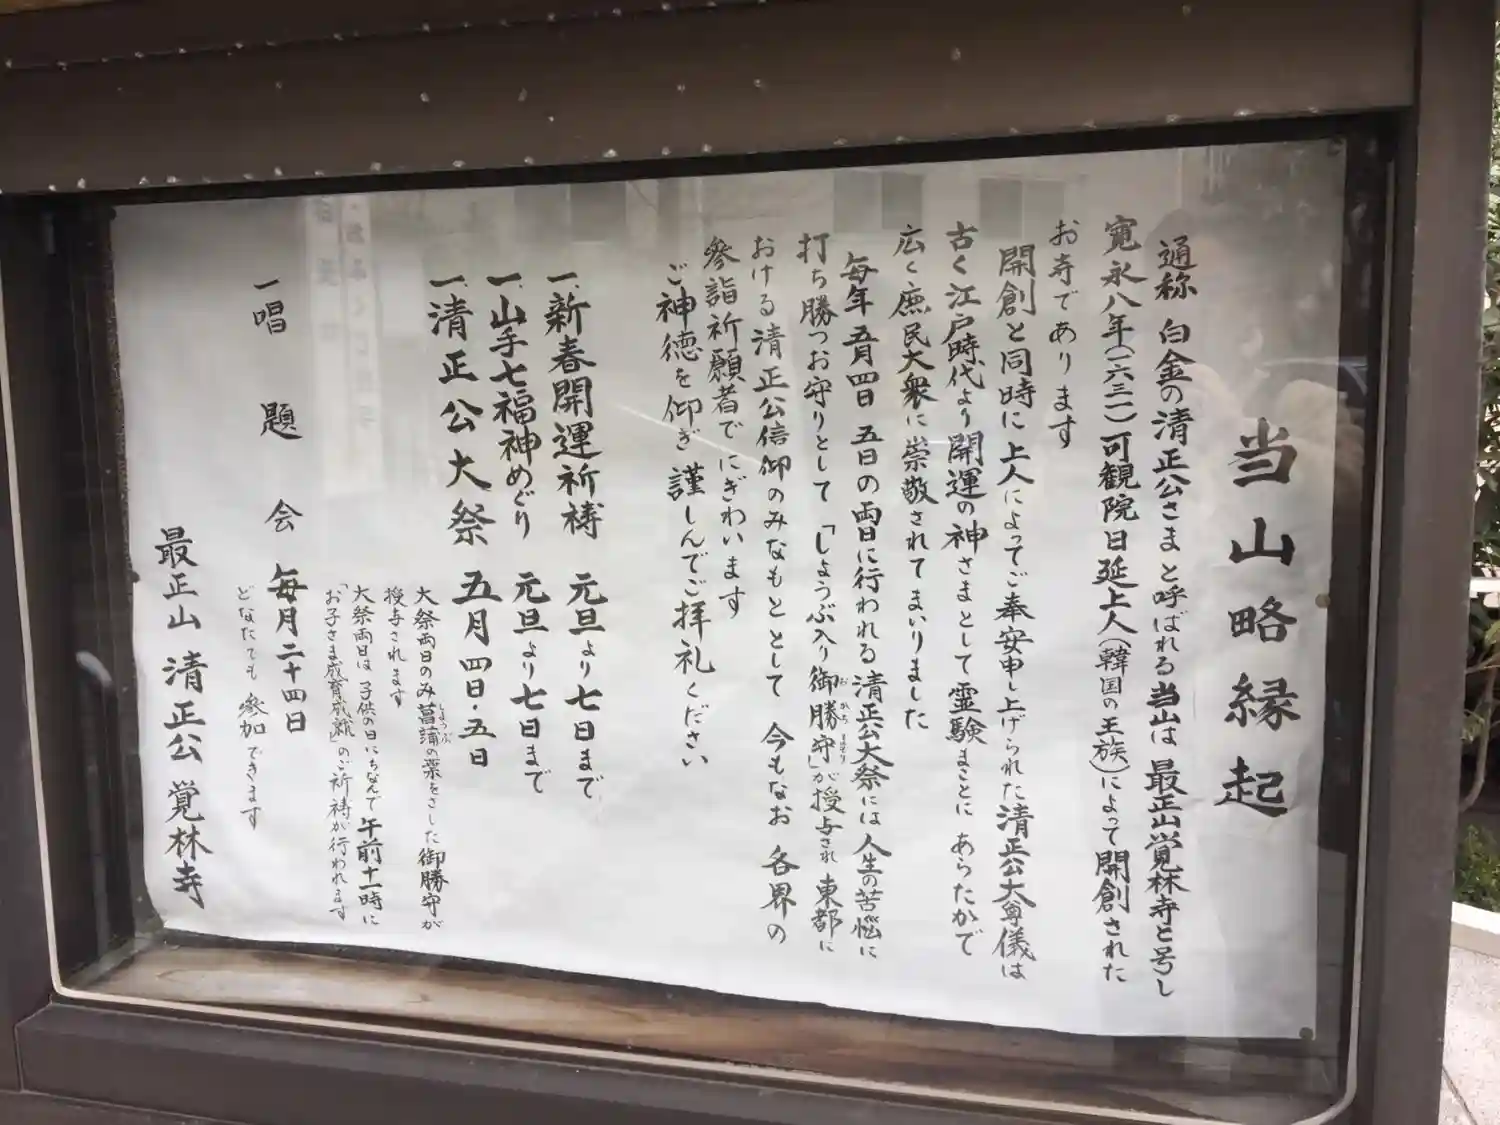 当山略縁起
通称 白金の清正公さまと呼ばれる当山は 最正山覚林寺と号し
寛永八年(一六三一)可観院日延上人(韓国の王族)によって開創された
お寺であります
開創と同時に上人によってご奉安申し上げられた清正公大尊儀は
古く江戸時代より開運の神さまとして霊験まことにあらたかで
広く庶民大衆に崇敬されてまいりました
毎年五月四日 五日の両日に行われる清正公大祭には人生の苦悩に
打ち勝つお守りとして「しょうぶ入り御勝守」が授与され東都に
お かち まもり
おける清正公信仰のみなもととして 今もなお 各界の
参詣祈願者でにぎわいます
ご神徳を仰ぎ謹しんでご拝礼ください
一、新春開運祈祷 元旦より七日まで
一、山手七福神めぐり 元旦より七日まで
一、清正公大祭 五月四日・五日
大祭両日のみ菖蒲の葉をさした御勝守が
しょうぶ
授与されます
大祭両日は子供の日にちなんで午前十一時に
「お子さま成育成就」のご祈祷が行われます
一唱題会 毎月二十四日
どなたでも参加できます
最正山 清正公 覚林寺